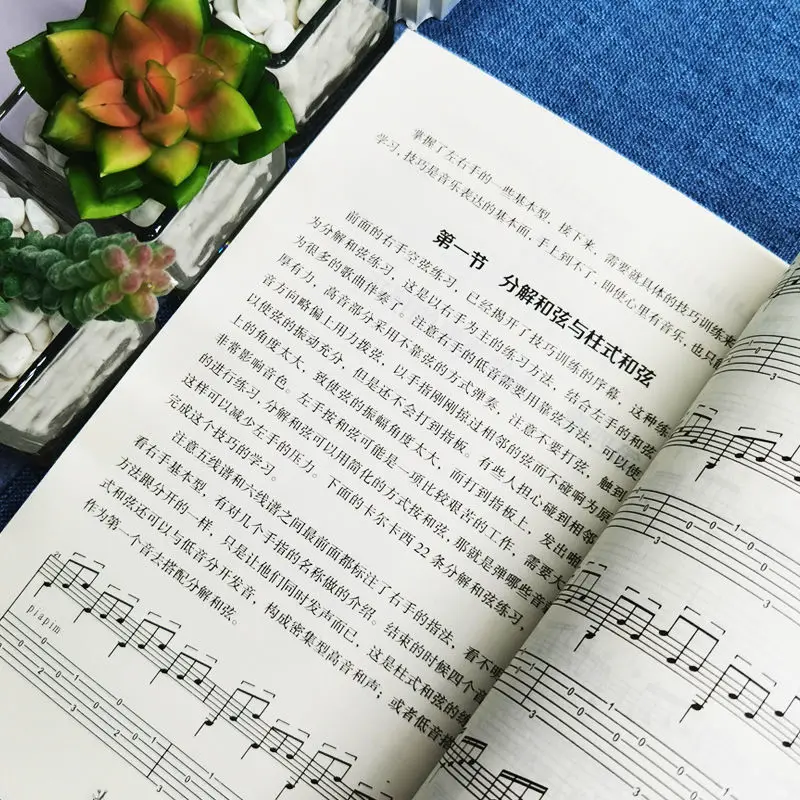 掌握了左右手的一些基本型，接下来，需要就具体的技巧训练来
学习，技巧是音乐表达的基本面，手上到不了，即使心里有音乐，也只
第一节 分解和弦与柱式和弦
前面的右手空弦练习，已经揭开了技巧训练的序幕，这种练
为分解和弦练习，这是以右手为主的练习方法，结合左手的和弦
为很多的歌曲伴奏了。注意右手的低音需要用靠弦方法，可以使
厚有力，高音部分采用不靠弦的方式弹奏，注意不要打弦，触到
音方向略偏上用力拨弦，以手指刚刚掠过相邻的弦而不碰响为原
以使弦的振动充分，但是还不会打到指板。有些人担心碰到相邻
上的角度太大，致使弦的振幅角度太大，而打到指板上，发出啪
非常影响音色。左手按和弦可能是一项比较艰苦的工作，需要大
的进行练习，分解和弦可以用简化的方式按和弦，那就是弹哪些音
这样可以减少左手的压力。下面的卡尔卡西22条分解和弦练习，
完成这个技巧的学习。
注意五线谱和六线谱之间最前面都标注了右手的指法，看不明
看右手基本型，有对几个手指的名称做的介绍。结束的时候四个音
方法跟分开的一样，只是让他们同时发声而已，这是柱式和弦的练
式和弦还可以与低音分开发音，构成密集型高音和声；或者低音搭
作为第一个音去搭配分解和弦。
p i a p i m